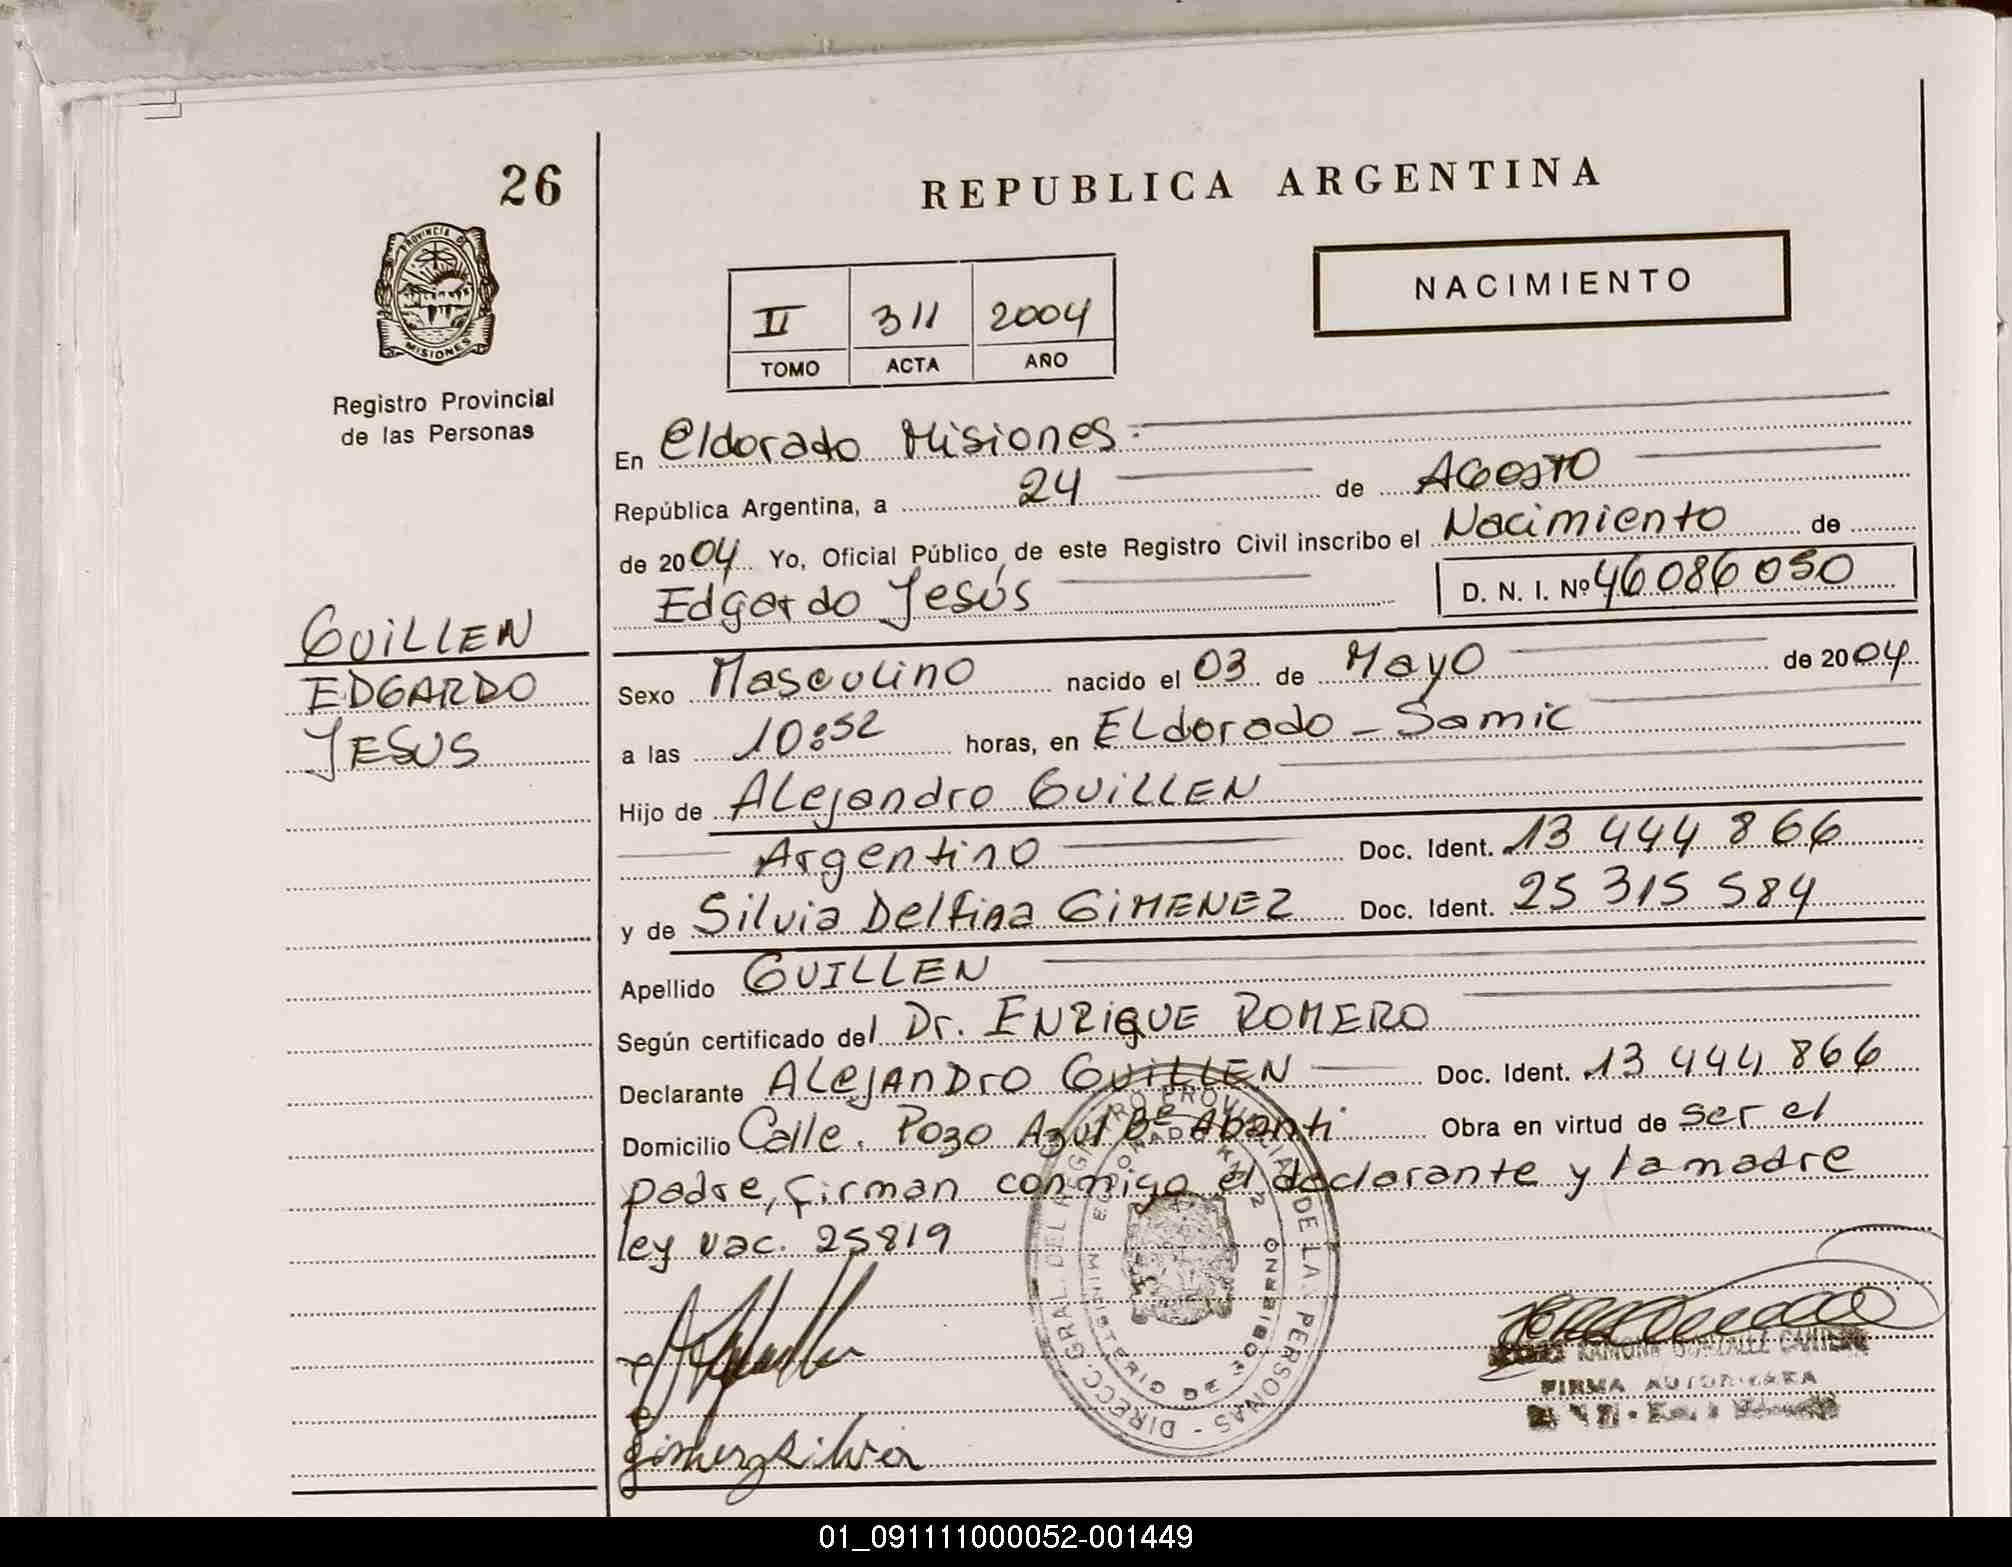 26
REPUBLICA ARGENTINA
PROVINCIA DE
MISIONES
NACIMIENTO
II 311 2004
TOMO ACTA AÑO
Registro Provincial
de las Personas
En Eldorado Misiones.
República Argentina, a 24 de AGOSTO
de 2004 Yo, Oficial Público de este Registro Civil inscribo el Nacimiento de
Edgardo Jesús D. N. I. Nº 46086050
GUILLEN
EDGARDO
JESUS
Sexo Masculino nacido el 03 de Mayo de 2004
a las 10:52 horas, en ELdorado - Samic
Hijo de ALejandro GUILLEN
Argentino Doc. Ident. 13 444 866
y de Silvia Delfina GIMENEZ Doc. Ident. 25 315 584
Apellido GUILLEN
Según certificado del Dr. ENRIQUE ROMERO
Declarante ALEJANDRO GUILLEN Doc. Ident. 13 444 866
Domicilio Calle. Pozo Azul Bº Abanti Obra en virtud de ser el
padre, firman conmigo el declarante y la madre
ley vac. 25819
DIRECC. GRAL. DEL REGISTRO PROVINCIAL DE LAS PERSONAS -
MINISTERIO DE GOBIERNO
ELDORADO KM 2
gimenez silvia
RAMONA GONZALEZ
FIRMA AUTORIZADA
01_091111000052-001449